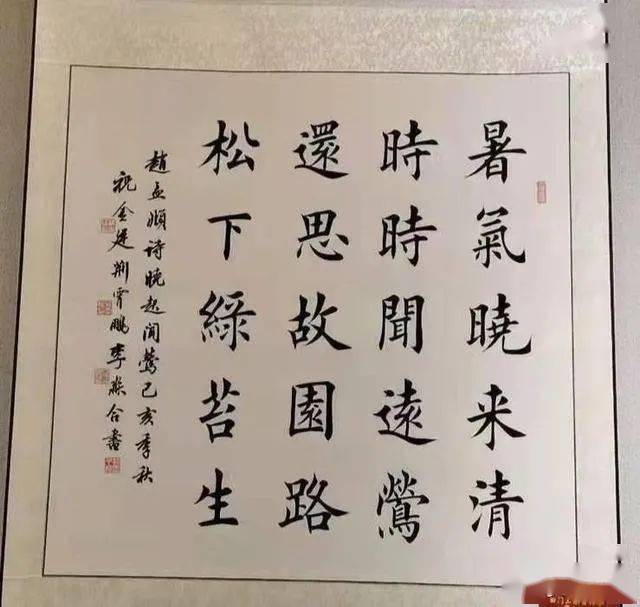 暑氣曉来清
時時聞遠鶯
還思故園路
松下綠苔生
趙孟頫詩曉起聞鶯己亥季秋
祝金廷荆霄鵬李森合書